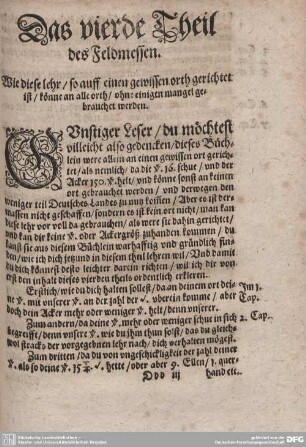 Das vierde Theil
des Feldmessen.
Wie diese lehr / so auff einen gewissen orth gerichtet
ist / könne an alle orth / ohne einigen mangel ge-
brauchet werden.
GUnstiger Leser / du möchtest
villeicht also gedencken / dieses Büch-
lein were allein an einen gewissen ort gerich-
tet / als nemlich / da die 16. schue / und der
Acker 150. helt / und könne sonst an keinen
ort gebrauchet werden / und derwegen den
weniger teil Deutsches Landes zu nutz kom̃en / Aber es ist der
massen nicht geschaffen / sondern es ist kein ort nicht / man kan
diese lehr vor voll da gebrauchen / als were sie dahin gerichtet /
und kan dir keine oder Ackergröß zuhanden kommen / du
kanst sie aus diesem Büchlein warhafftig und gründlich fin-
den / wie ich dich jetzund in diesem thul lehren wil / Und damit
du dich könnest desto leichter darein richten / wil ich dir vor-
erst den inhalt dieses vierden theils ordentlich erkleren.
Erstlich / wie du dich halten sollest / da an deinem ort dei-
ne mit unserer an der zahl der uberein komme / aber
doch dein Acker mehr oder weniger helt / denn unserer.
Im 1.
Cap.
Zum andern / da deine mehr oder weniger schue in sich
begreifft / denn unsere wie du ihm thun solst / das du gleichs-
wol stracks der vorgegebenen lehr nach / dich verhalten mögest.
2. Cap.
Zum dritten / da du von ungeschickligkeit der zahl deiner
als so deine 15 hette / oder aber 9. Ellen / 1. quer-
Ddd iij
hand etc.